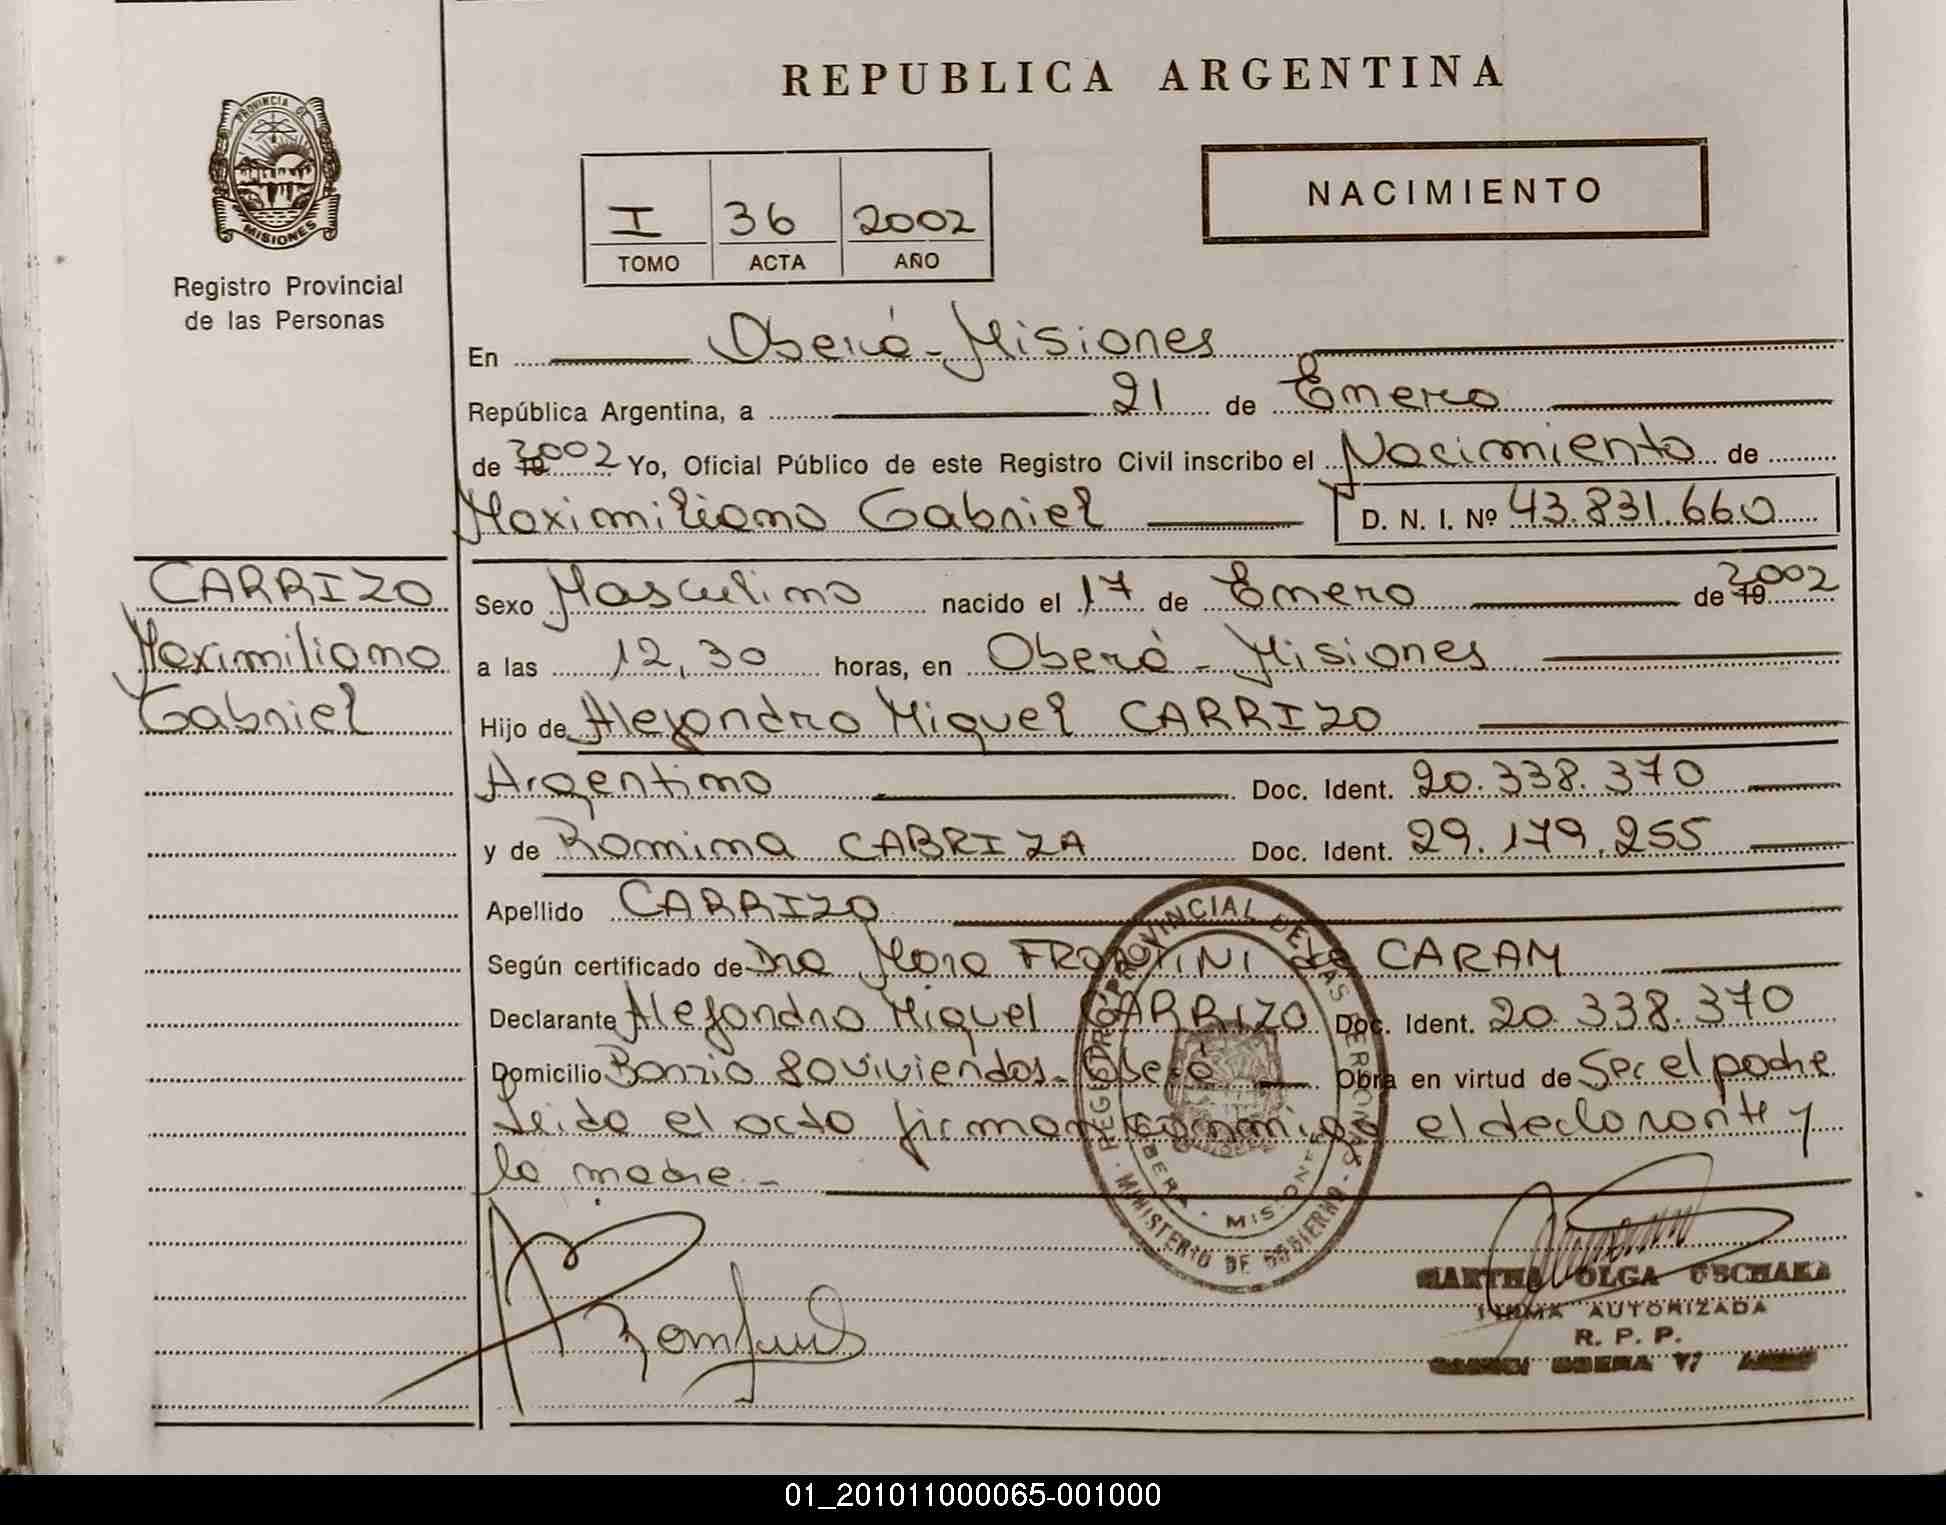 REPUBLICA ARGENTINA
PROVINCIA DE
MISIONES
Registro Provincial
de las Personas
I 36 2002
TOMO ACTA AÑO
NACIMIENTO
En Oberá - Misiones
República Argentina, a 21 de Enero
de 2002 Yo, Oficial Público de este Registro Civil inscribo el Nacimiento de
Maximiliano Gabriel D. N. I. Nº 43.831.660
CARRIZO
Maximiliano
Gabriel
Sexo Masculino nacido el 17 de Enero de 2002
a las 12,30 horas, en Oberá - Misiones
Hijo de Alejandro Miguel CARRIZO
Argentino Doc. Ident. 20.338.370
y de Romina CABRIZA Doc. Ident. 29.179.255
Apellido CARRIZO
Según certificado de Dra Mora de CARAM
Declarante Alejandro Miguel CARRIZO Doc. Ident. 20.338.370
Domicilio Barrio 80 viviendas - Oberá Obra en virtud de Ser el padre
Leida el acta firman conmigo el declarante y
la madre.-
REGISTRO PROVINCIAL DE LAS PERSONAS
OBERA - MISIONES
MINISTERIO DE GOBIERNO
MARTHA OLGA USCHAKA
FIRMA AUTORIZADA
R. P. P.
01_201011000065-001000